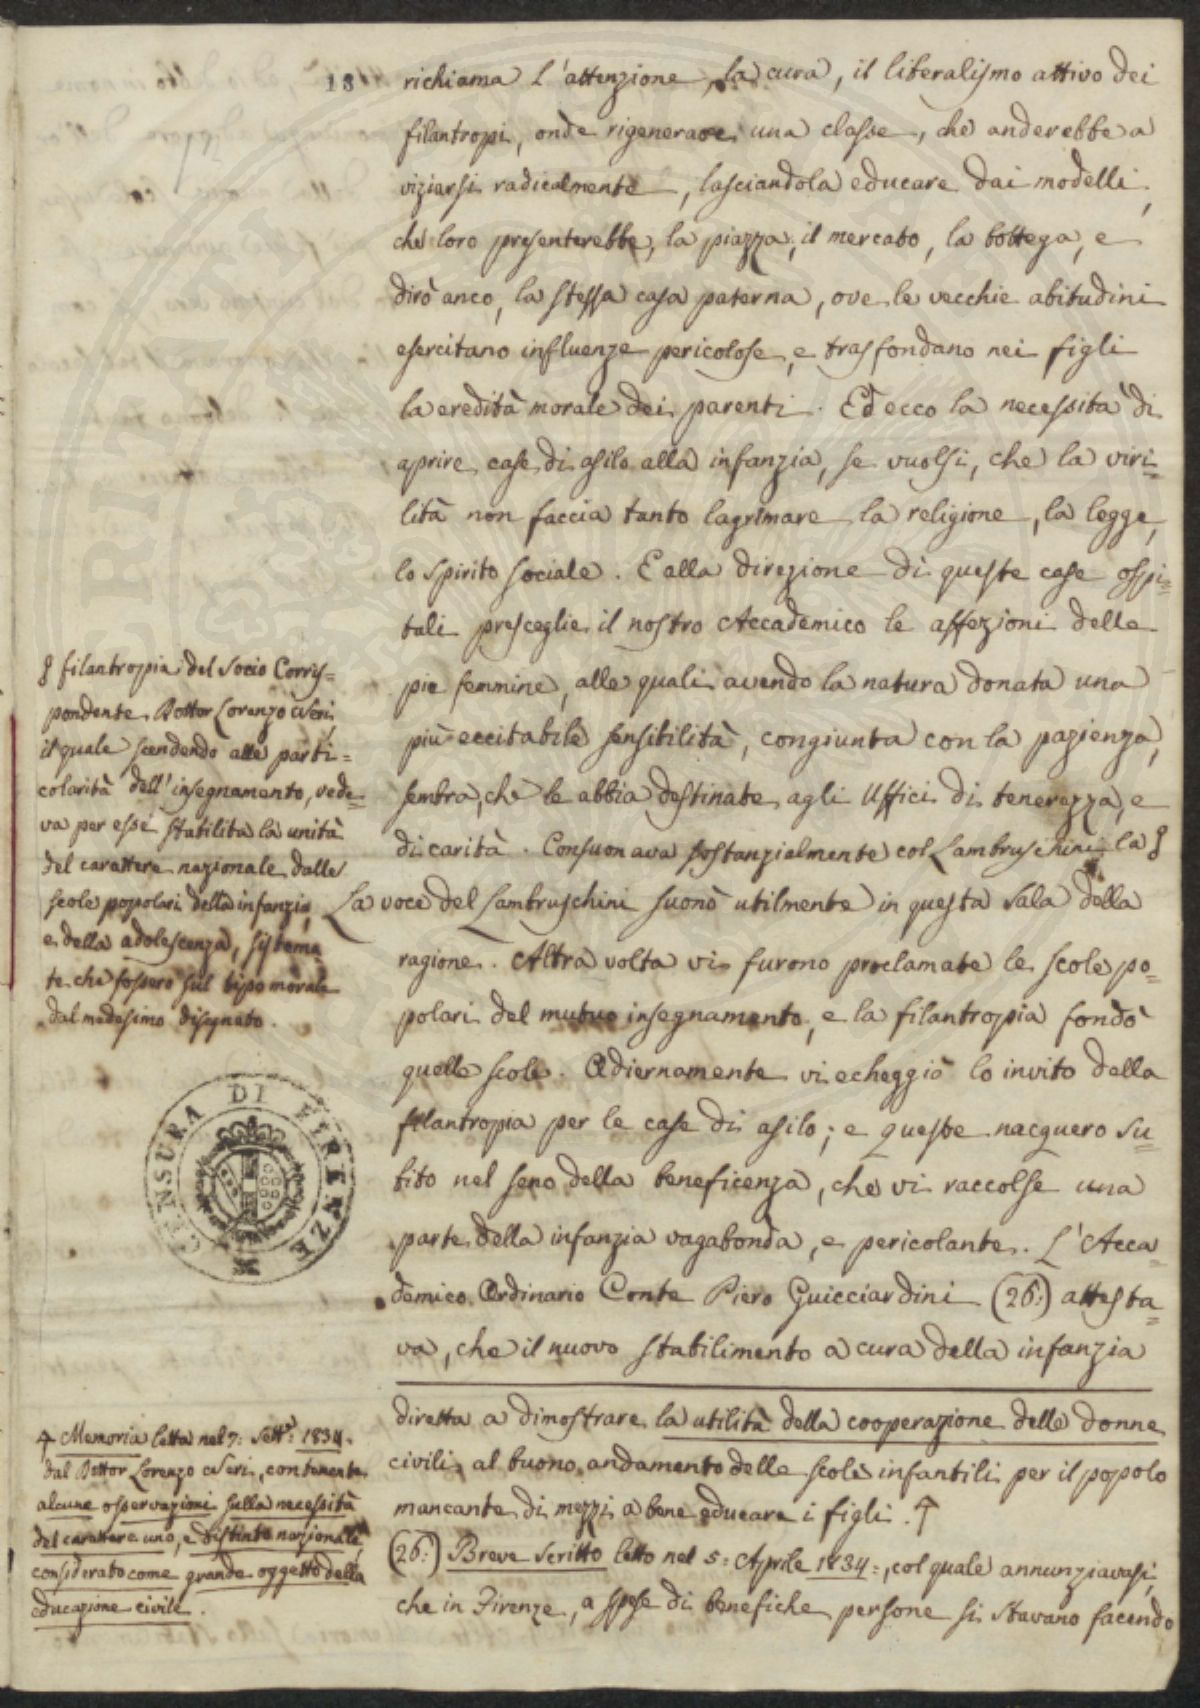 18
richiama l'attenzione, la cura, il liberalismo attivo dei
filantropi, onde rigenerare una classe, che anderebbe a
viziarsi radicalmente, lasciandola educare dai modelli,
che loro presenterebbe, la piazza, il mercato, la bottega, e
dirò anco, la stessa casa paterna, ove le vecchie abitudini
esercitano influenze pericolose, e trasfondano nei figli
la eredità morale dei parenti. Ed ecco la necessità di
aprire case di asilo alla infanzia, se vuolsi, che la viri=
lità non faccia tanto lagrimare la religione, la legge,
lo spirito sociale. E alla direzione di queste case ospi=
tali presceglie il nostro Accademico le affezioni delle
pie femmine, alle quali avendo la natura donata una
più eccitabile sensibilità, congiunta con la pazienza,
sembra, che le abbia destinate agli Uffici di tenerezza, e
di carità. Consuonava sostanzialmente col Lambruschini la §
La voce del Lambruschini suonò utilmente in questa Sala della
ragione. Altra volta vi furono proclamate le scole po=
polari del mutuo insegnamento, e la filantropia fondò
quelle scole. Odiernamente vi echeggiò lo invito della
filantropia per le case di asilo; e queste nacquero su=
bito nel seno della beneficenza, che vi raccolse una
parte della infanzia vagabonda, e pericolante. L'Acca=
demico Ordinario Conte Piero Guicciardini (26:) attesta=
va, che il nuovo stabilimento a cura della infanzia
diretta a dimostrare la utilità della cooperazione delle donne
civili al buono andamento delle scole infantili per il popolo
mancante di mezzi a bene educare i figli.
(26:) Breve scritto letto nel 5: Aprile 1834:, col quale annunziavasi,
che in Firenze, a spese di benefiche persone si stavano facendo
§ filantropia del Socio Corris=
pondente Dottor Lorenzo Neri,
il quale scendendo alle parti=
colarità dell'insegnamento, vede=
va per esse stabilita la unità
del carattere nazionale dalle
scole popolari della infanzia,
e della adolescenza, sistema
te che fossero sul tipo morale
dal medesimo disegnato.
CENSURA DI FIRENZE
Memoria letta nel 7: Sett.e 1834.
dal Dottor Lorenzo Neri, contenente
alcune osservazioni sulla necessità
del carattere uno, e distinto nazionale,
considerato come grande oggetto della
educazione civile.